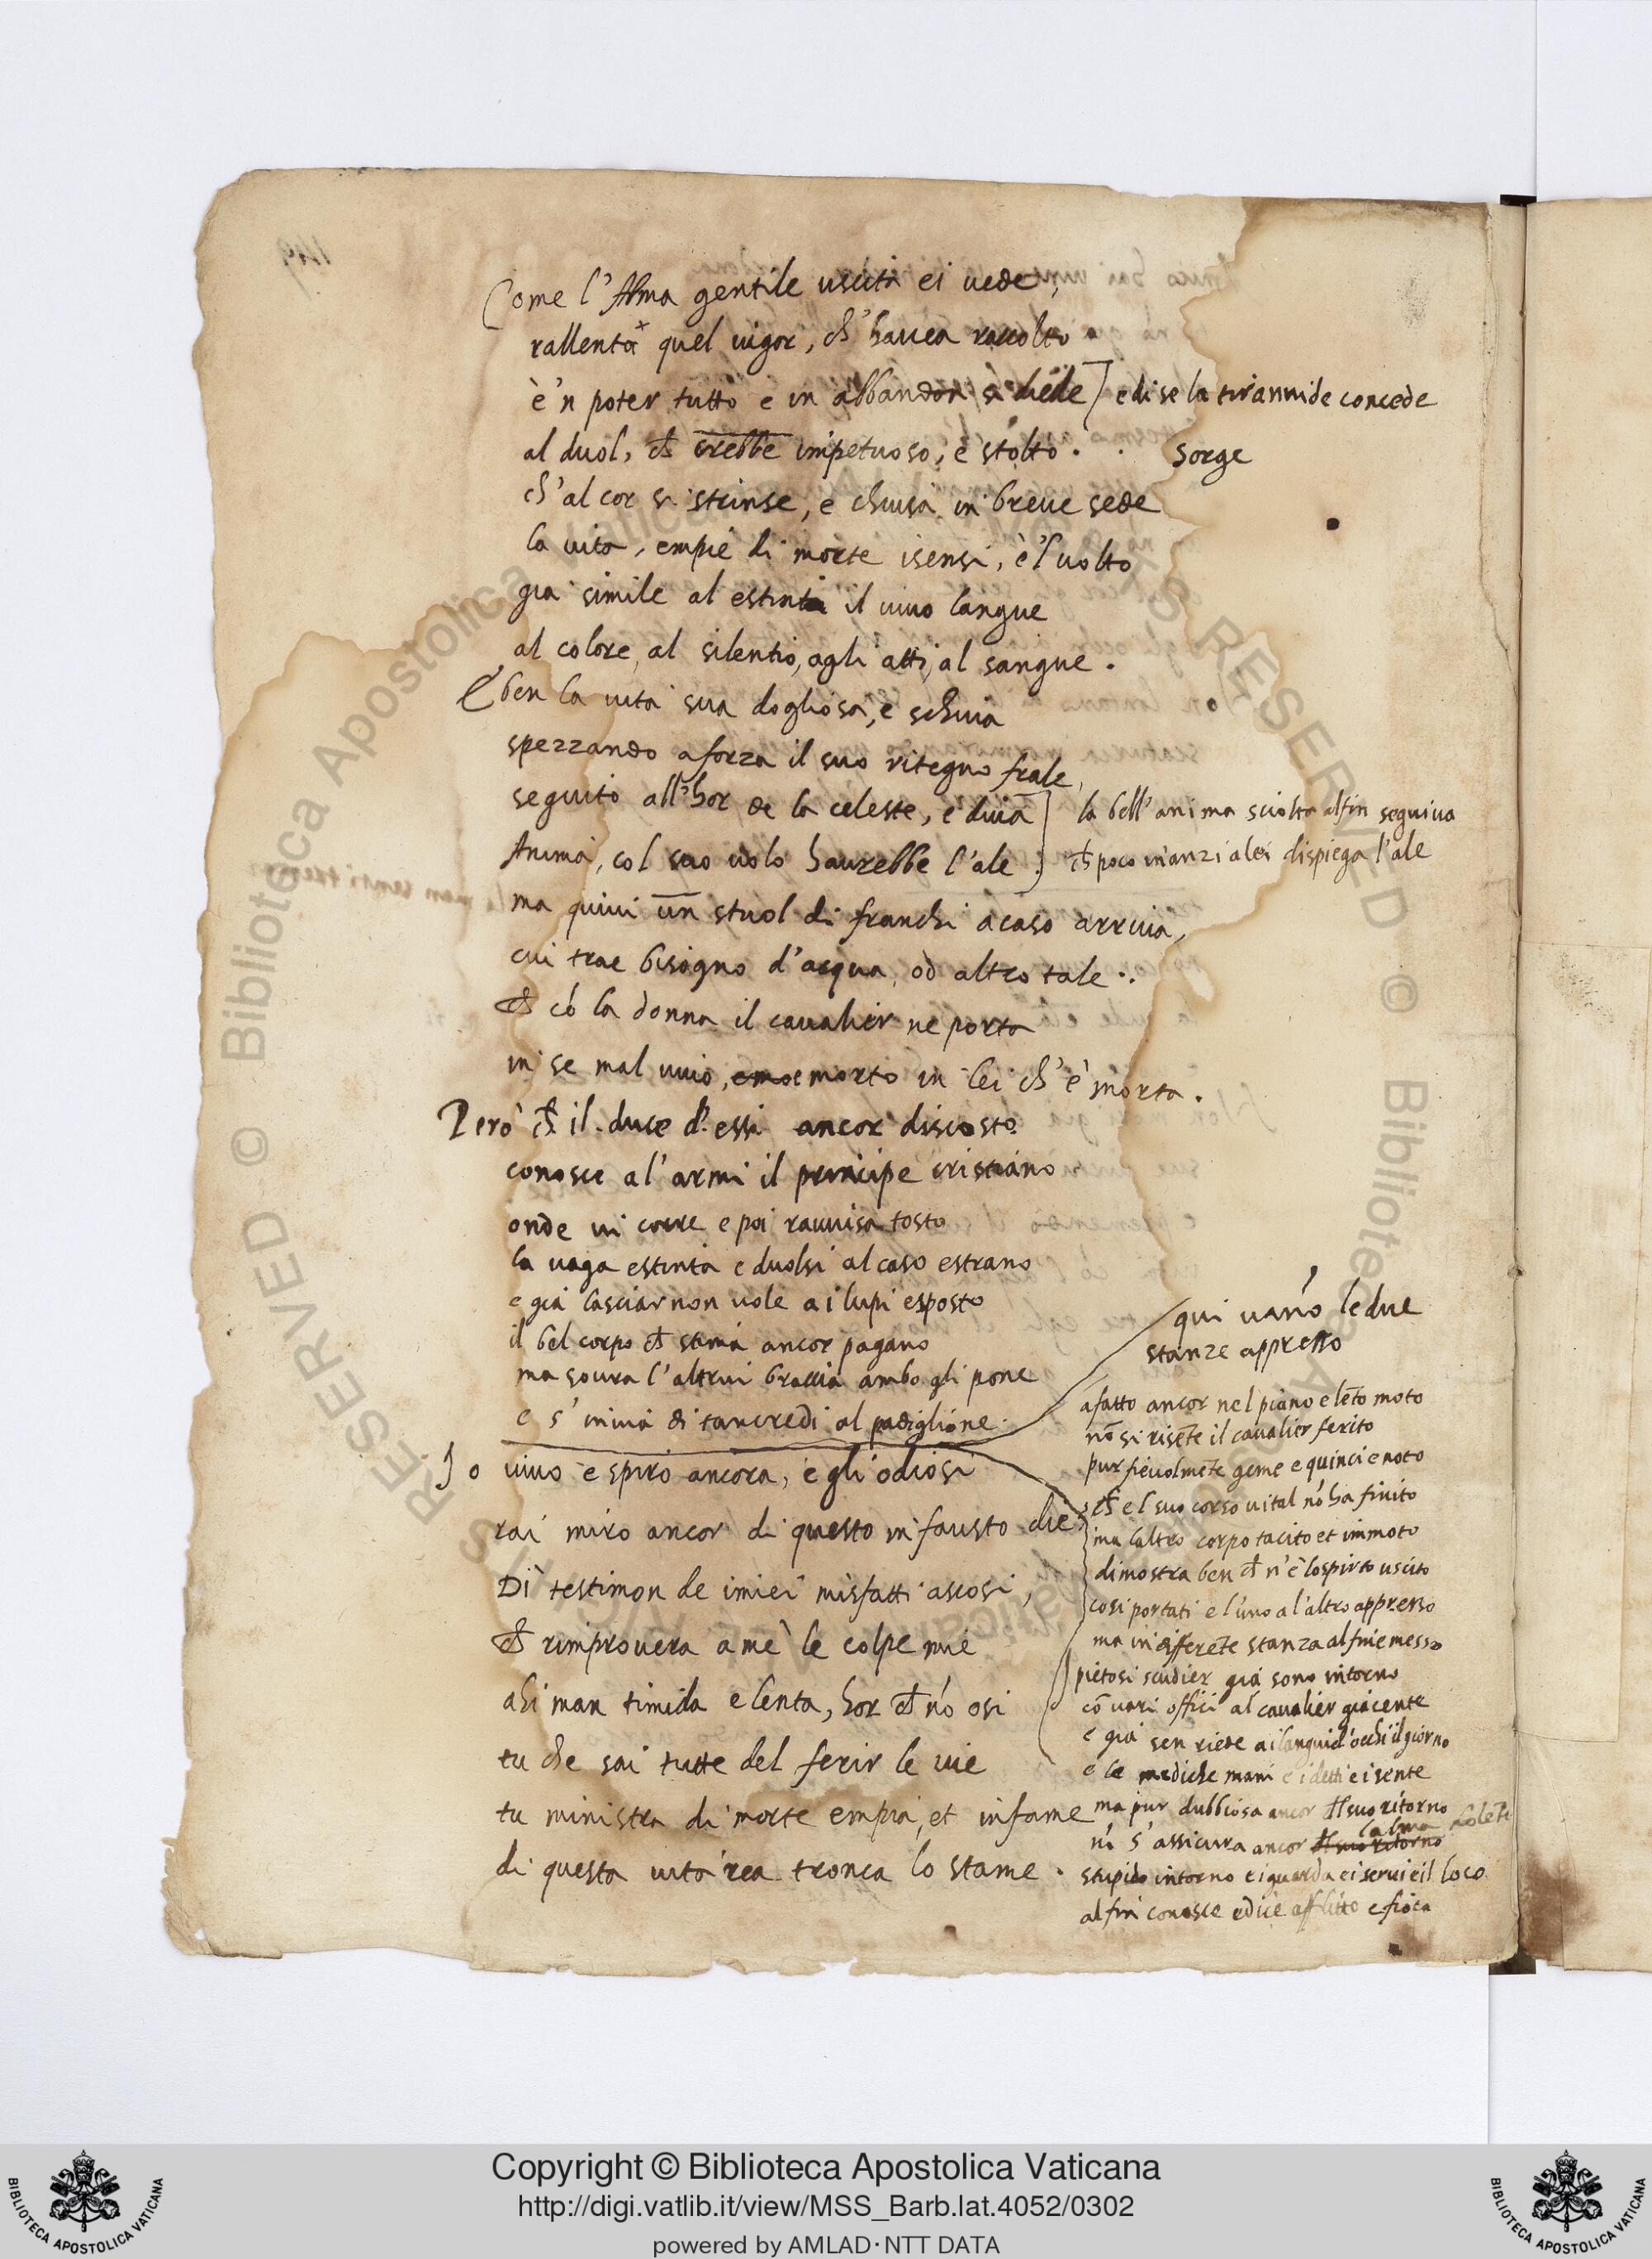 Come l'Alma gentile uscita ei vede,
rallentò quel vigor, ch'havea raccolto
è 'n poter tutto e in abbandon si diede] e di se la tirannide concede
al duol, ch̃ crebbe impetuoso, e stolto. sorge
ch'al cor si strinse, e chiusa in breve sede
la vita, empiè di morte i sensi, è 'l volto
gia simile al estinto il vivo langue
al colore, al silentio, agli atti, al sangue.
E ben la vita sua dogliosa, e schiva
spezzando a forza il suo ritegno frale,
seguito all'hor de la celeste, e diva] la bell'anima sciolta alfin seguiva
Anima, col suo volo haurebbe l'ale.] ch̃ poco inanzi a lei dispiega l'ale
ma quivi un stuol di franchi a caso arriva,
cui trae bisogno d'acqua, od altro tale.
ch̃ cõ la donna il cavalier ne porta
in se mal vivo, e morto in lei ch'è morta.
Però ch̃ il duce d'essi ancor discosto
conosce a l'armi il principe cristiano
onde vi corre e poi ravvisa tosto
la vaga estinta e duolsi al caso estrano
e già lasciar non vole a i lupi esposto
il bel corpo ch̃ stima ancor pagano
ma sovra l'altrui braccia ambo gli pone
e s'invia di tancredi al padiglione.
Io vivo e spiro ancora, e gli odiosi
rai miro ancor di questo infausto die
Dì testimon de i miei misfatti ascosi,
ch̃ rimprovera a me le colpe mie
ahi man timida e lenta, hor ch̃ nõ osi
tu che sai tutte del ferir le vie
tu ministra di morte empia, et infame
di questa vita rea tronca lo stame.
qui vanno le due
stanze appresso
afatto ancor nel piano e lẽto moto
nõ si risẽte il cavalier ferito
pur fievolmẽte geme e quinci e noto
ch̃ e l suo corso vital nõ ha finito
ma l'altro corpo tacito et immoto
dimostra ben ch̃ n'è lo spirto uscito
cosi portati e l'uno a l'altro appresso
ma in differẽte stanza al fin e messo
pietosi scudier già sono intorno
cõ vari offici al cavalier giacente
e già sen riede a i languid'occhi il giorno
e le mediche mani e i detti ei sente
ma pur dubbiosa ancor d'l suo ritorno
nõ s'assicura ancor d'l suo ritorno l'alma
stupido intorno ei guarda e i servi e il loco
al fin conosce e dice afflitto e fioco
Copyright © Biblioteca Apostolica Vaticana
http://digi.vatlib.it/view/MSS_Barb.lat.4052/0302
powered by AMLAD·NTT DATA